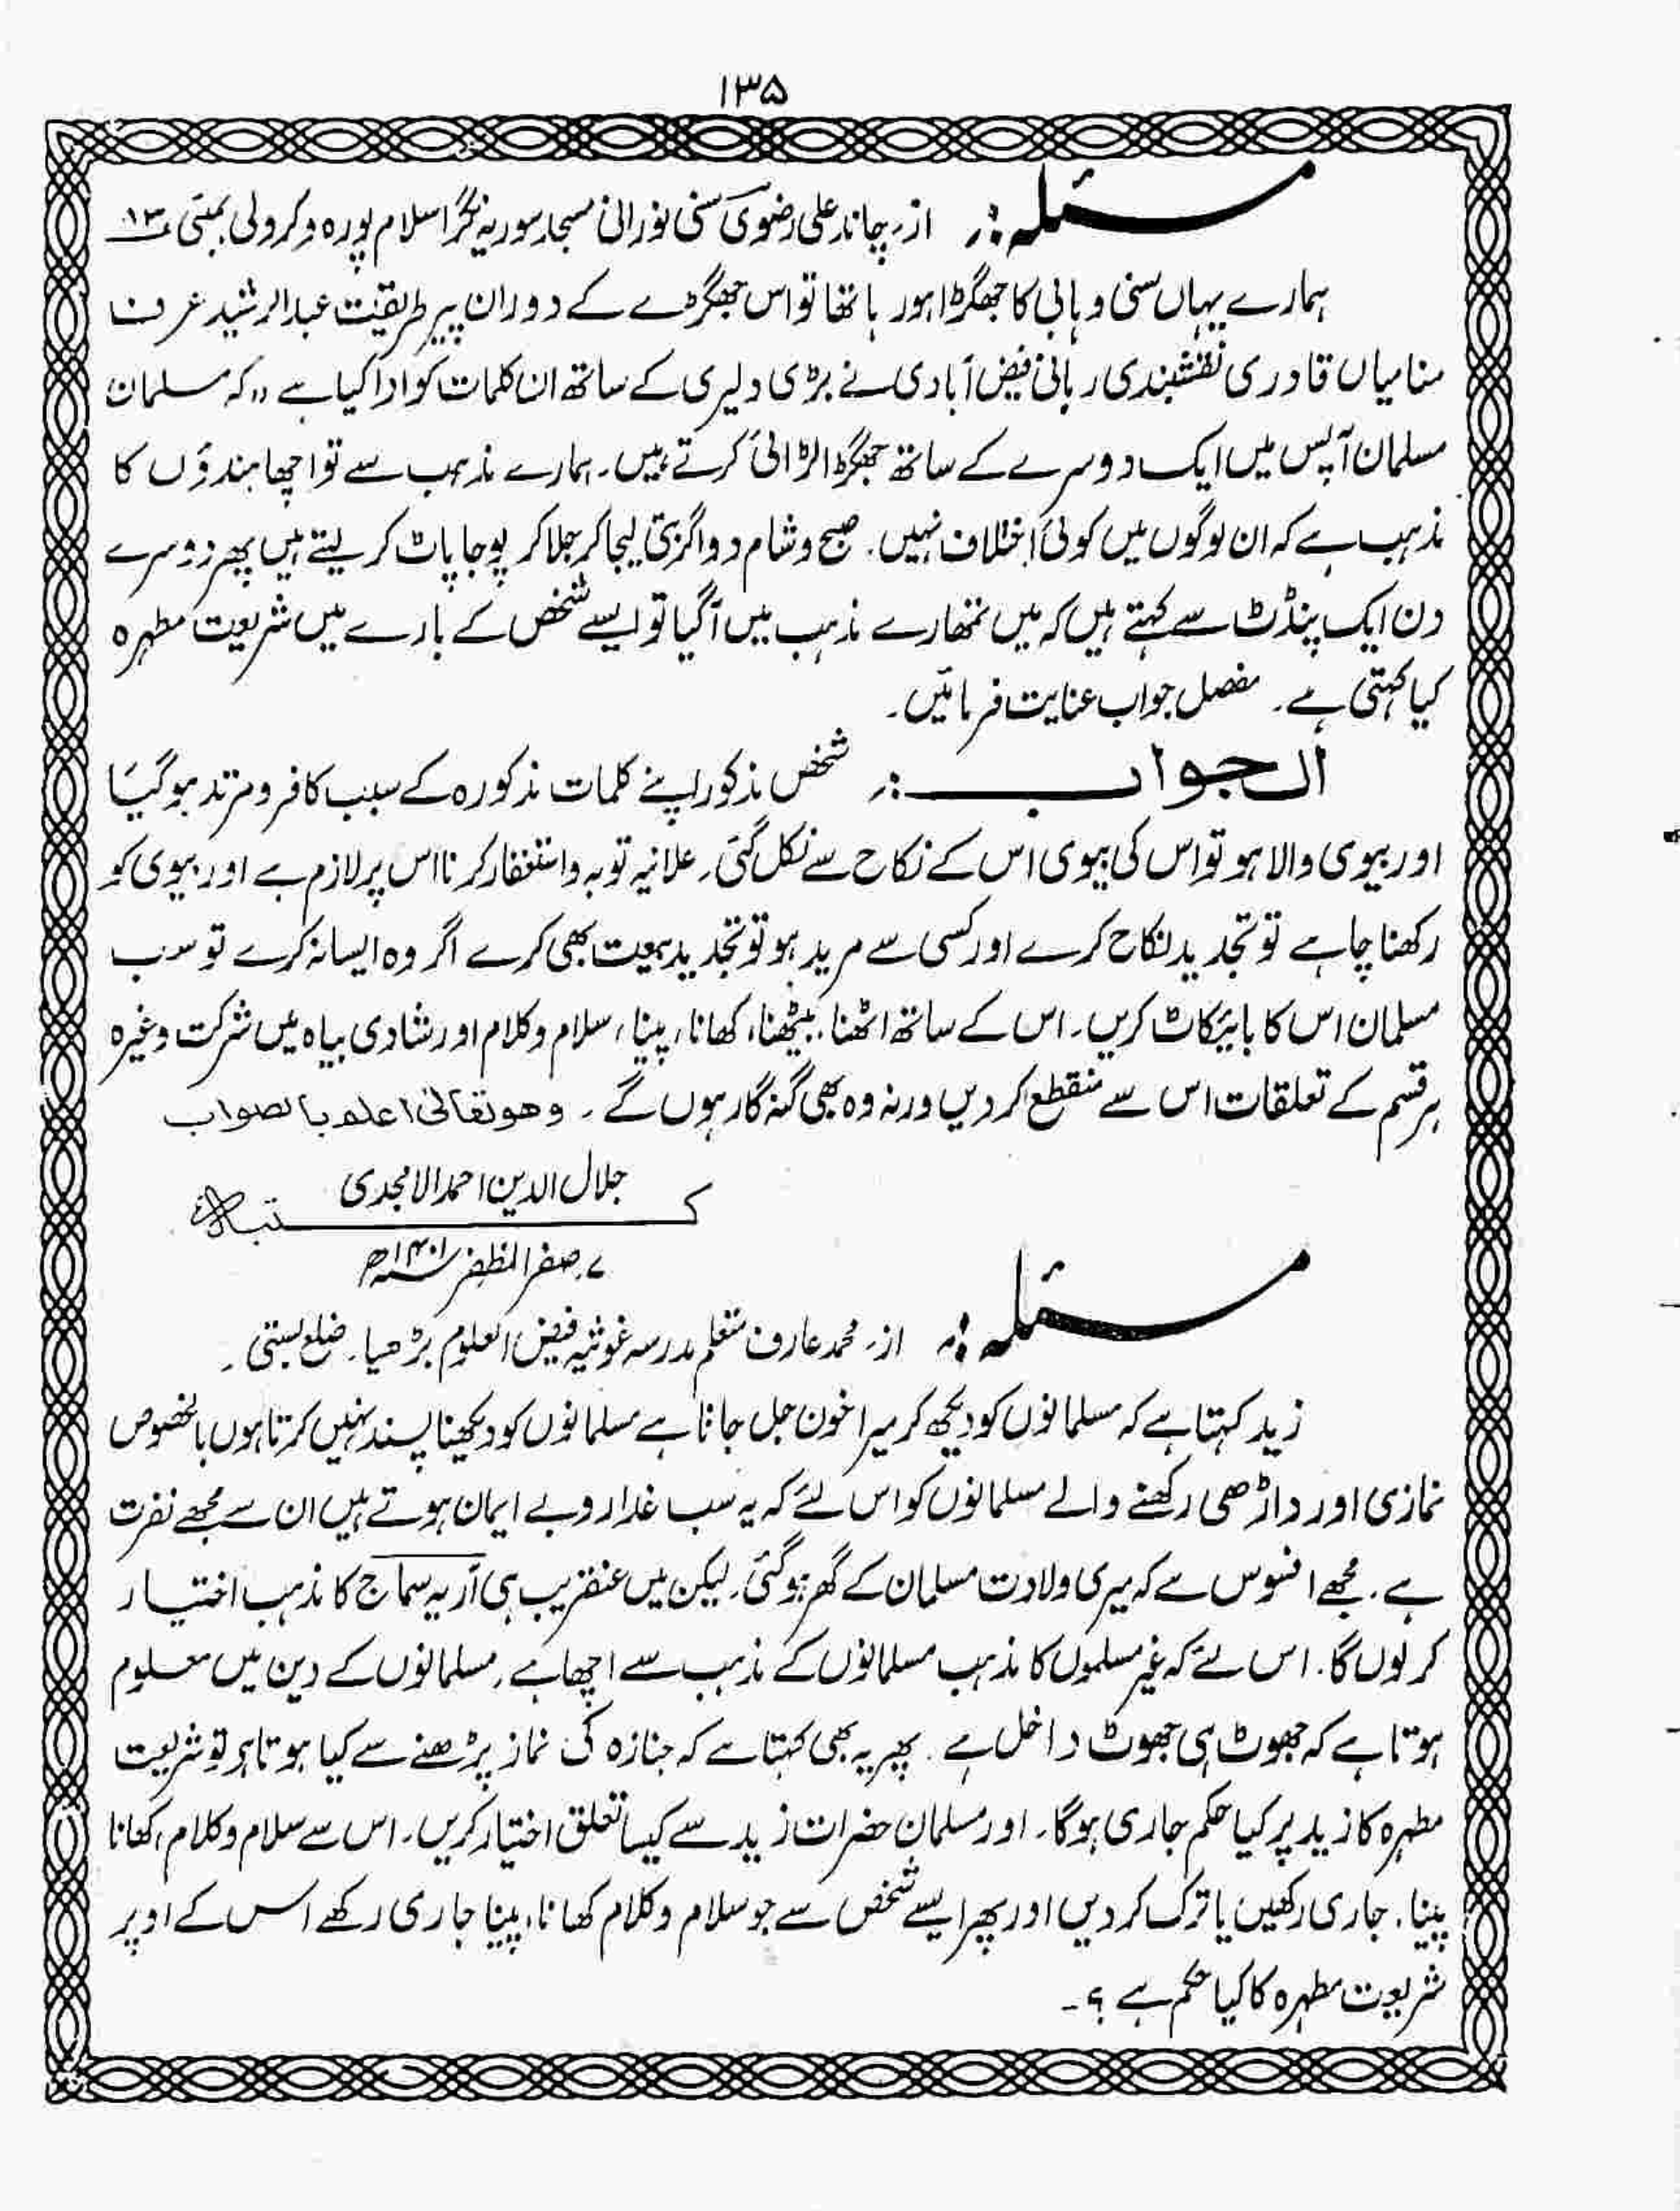 ۱۳۵
مسئلہ:۔ از۔ چاند علی رضوی سنی نورانی مسجد سوریہ نگر اسلام پورہ وکرولی بمبئی
ہمارے یہاں سنی وہابی کا جھگڑا ہورہا تھا تو اس جھگڑے کے دوران پیر طریقیت عبدالرشید عرف
منا میاں قادری نقشبندی ربانی فیض آبادی نے بڑی دلیری کے ساتھ ان کلمات کو ادا کیا ہے ،،کہ مسلمان
مسلمان آپس میں ایک دوسرے کے ساتھ جھگڑا لڑائی کرتے ہیں۔ ہمارے مذہب سے تو اچھا ہندؤں کا
مذہب ہے کہ ان لوگوں میں کوئی اختلاف نہیں۔ صبح و شام دو اگربتی لیجا کر جلا کر پوجا پاٹ کر لیتے ہیں پھر دوسرے
دن ایک پنڈٹ سے کہتے ہیں کہ میں تمھارے مذہب میں آگیا تو ایسے شخص کے بارے میں شریعت مطہرہ
کیا کہتی ہے۔ مفصل جواب عنایت فرمائیں۔
الجواب:۔ شخص مذکور اپنے کلمات مذکورہ کے سبب کافر و مرتد ہوگیا
اور بیوی والا ہو تو اس کی بیوی اس کے نکاح سے نکل گئی۔ علانیہ توبہ و استغفار کرنا اس پر لازم ہے اور بیوی کو
رکھنا چاہے تو تجدید نکاح کرے اور کسی سے مرید ہو تو تجدید بیعت بھی کرے اگر وہ ایسا نہ کرے تو سب
مسلمان اس کا بائیکاٹ کریں۔ اس کے ساتھ اٹھنا، بیٹھنا، کھانا، پینا، سلام و کلام اور شادی بیاہ میں شرکت وغیرہ
ہر قسم کے تعلقات اس سے منقطع کر دیں ورنہ وہ بھی گنہگار ہوں گے۔ وھو تعالیٰ اعلم بالصواب
جلال الدین احمد الامجدی
کتبہ
۷۔ صفر المظفر ۱۴۰۱ھ
مسئلہ:۔ از۔ محمد عارف متعلم مدرسہ غوثیہ فیض العلوم بڑھیا۔ ضلع بستی۔
زید کہتا ہے کہ مسلمانوں کو دیکھ کر میرا خون جل جاتا ہے مسلمانوں کو دیکھنا پسند نہیں کرتا ہوں بالخصوص
نمازی اور داڑھی رکھنے والے مسلمانوں کو اس لئے کہ یہ سب غدار و بے ایمان ہوتے ہیں ان سے مجھے نفرت
ہے۔ مجھے افسوس ہے کہ میری ولادت مسلمان کے گھر ہوگئی۔ لیکن میں عنقریب ہی آریہ سماج کا مذہب اختیار
کر لوں گا۔ اس لئے کہ غیر مسلموں کا مذہب مسلمانوں کے مذہب سے اچھا ہے، مسلمانوں کے دین میں معلوم
ہوتا ہے کہ جھوٹ ہی جھوٹ داخل ہے۔ پھر یہ بھی کہتا ہے کہ جنازہ کی نماز پڑھنے سے کیا ہوتا ہر تو شریعت
مطہرہ کا زید پر کیا حکم جاری ہوگا۔ اور مسلمان حضرات زید سے کیسا تعلق اختیار کریں۔ اس سے سلام و کلام، کھانا
پینا، جاری رکھیں یا ترک کر دیں اور پھر ایسے شخص سے جو سلام و کلام کھانا، پینا جاری رکھے اس کے اوپر
شریعت مطہرہ کا کیا حکم ہے ؟۔